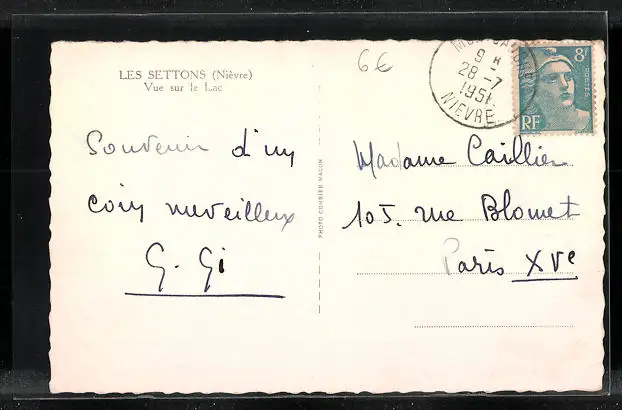 LES SETTONS (Nièvre)
Vue sur le Lac
6€
9 H
28 - 7
1951
NIEVRE
8F
POSTES
RF
Souvenir d'un
coin merveilleux
G. Gi
PHOTO COMBIER MACON
Madame Caillier
105. rue Blomet
Paris XVe